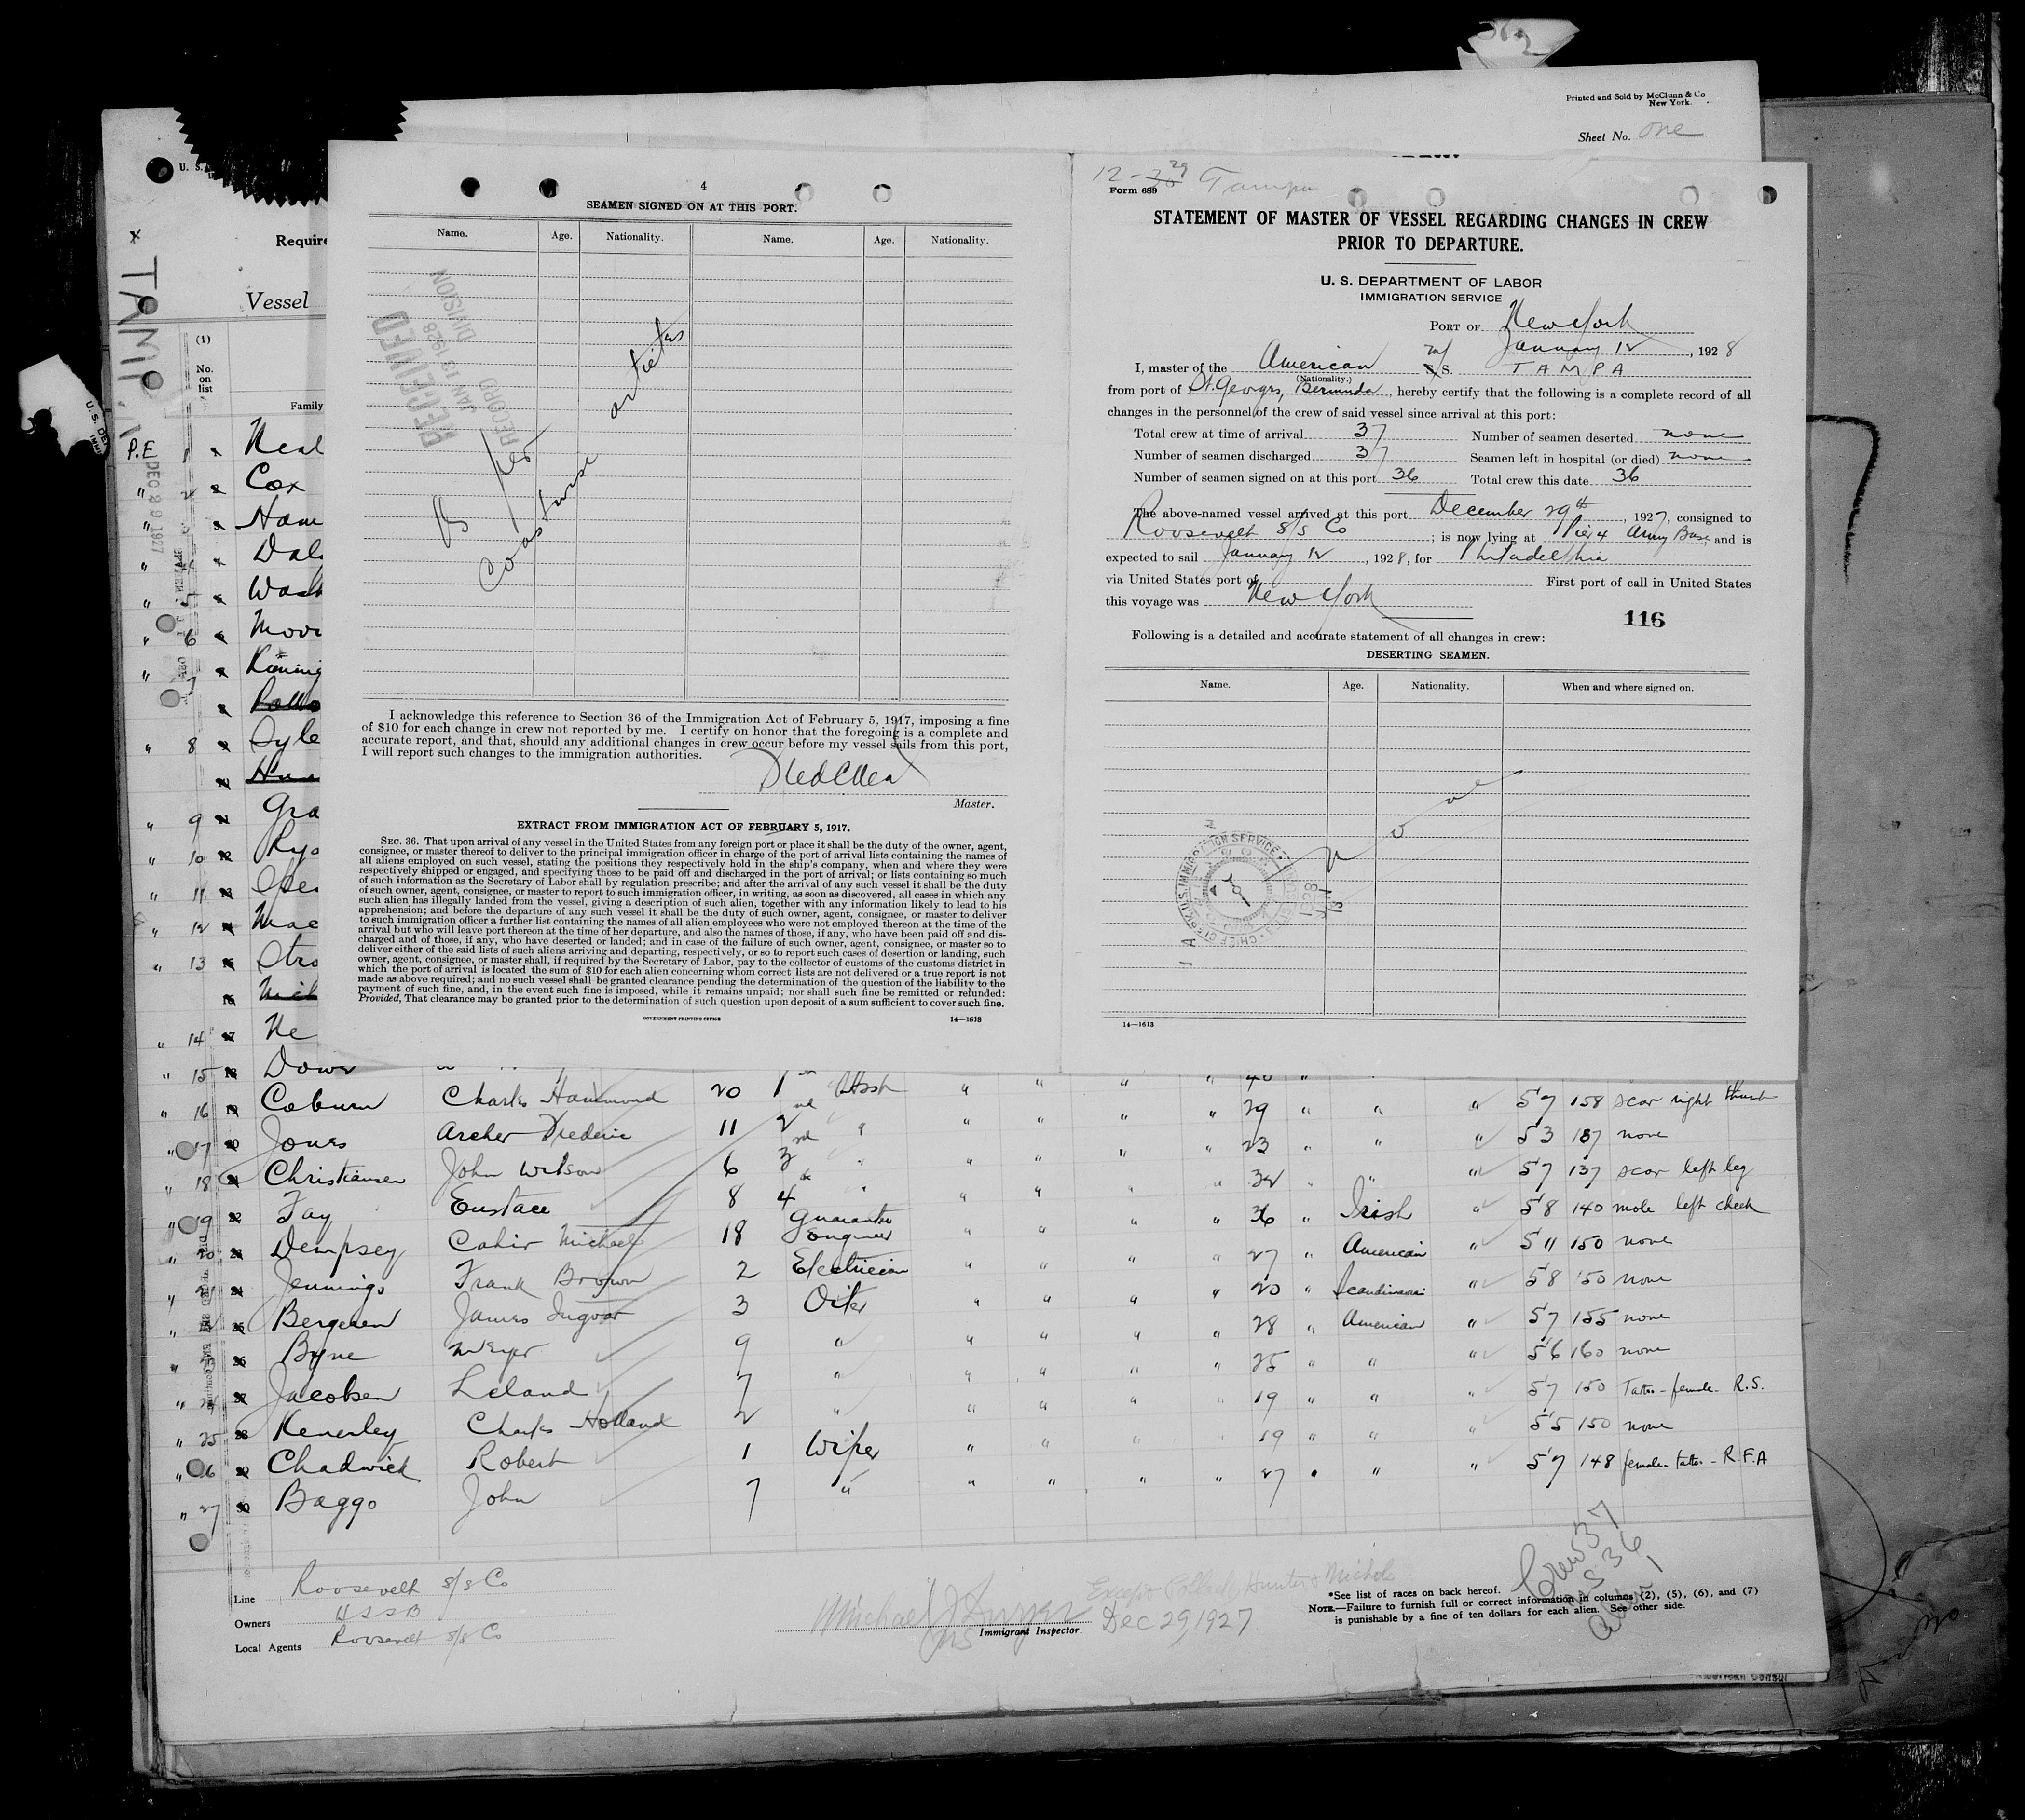 Printed and Sold by McClunn & Co
New York.
Sheet No. one
U. S.
Require
Vessel
(1)
No.
on
list
Family
TAMPA
DEC 29 1927
4
SEAMEN SIGNED ON AT THIS PORT.
Name. Age. Nationality. Name. Age. Nationality.
RECEIVED
JAN 12 1928
RECORD DIVISION
As per
Coastwise articles
I acknowledge this reference to Section 36 of the Immigration Act of February 5, 1917, imposing a fine
of $10 for each change in crew not reported by me. I certify on honor that the foregoing is a complete and
accurate report, and that, should any additional changes in crew occur before my vessel sails from this port,
I will report such changes to the immigration authorities.
Master.
EXTRACT FROM IMMIGRATION ACT OF FEBRUARY 5, 1917.
SEC. 36. That upon arrival of any vessel in the United States from any foreign port or place it shall be the duty of the owner, agent,
consignee, or master thereof to deliver to the principal immigration officer in charge of the port of arrival lists containing the names of
all aliens employed on such vessel, stating the positions they respectively hold in the ship's company, when and where they were
respectively shipped or engaged, and specifying those to be paid off and discharged in the port of arrival; or lists containing so much
of such information as the Secretary of Labor shall by regulation prescribe; and after the arrival of any such vessel it shall be the duty
of such owner, agent, consignee, or master to report to such immigration officer, in writing, as soon as discovered, all cases in which any
such alien has illegally landed from the vessel, giving a description of such alien, together with any information likely to lead to his
apprehension; and before the departure of any such vessel it shall be the duty of such owner, agent, consignee, or master to deliver
to such immigration officer a further list containing the names of all alien employees who were not employed thereon at the time of the
arrival but who will leave port thereon at the time of her departure, and also the names of those, if any, who have been paid off and dis-
charged and of those, if any, who have deserted or landed; and in case of the failure of such owner, agent, consignee, or master so to
deliver either of the said lists of such aliens arriving and departing, respectively, or so to report such cases of desertion or landing, such
owner, agent, consignee, or master shall, if required by the Secretary of Labor, pay to the collector of customs of the customs district in
which the port of arrival is located the sum of $10 for each alien concerning whom correct lists are not delivered or a true report is not
made as above required; and no such vessel shall be granted clearance pending the determination of the question of the liability to the
payment of such fine, and, in the event such fine is imposed, while it remains unpaid; nor shall such fine be remitted or refunded:
Provided, That clearance may be granted prior to the determination of such question upon deposit of a sum sufficient to cover such fine.
GOVERNMENT PRINTING OFFICE 14—1613
12-29 Tampa
Form 689
STATEMENT OF MASTER OF VESSEL REGARDING CHANGES IN CREW
PRIOR TO DEPARTURE.
U. S. DEPARTMENT OF LABOR
IMMIGRATION SERVICE
PORT OF New York
January 12, 1928
I, master of the American M/S. TAMPA
(Nationality.)
from port of St. Georges, Bermuda, hereby certify that the following is a complete record of all
changes in the personnel of the crew of said vessel since arrival at this port:
Total crew at time of arrival 37 Number of seamen deserted none
Number of seamen discharged 37 Seamen left in hospital (or died) none
Number of seamen signed on at this port 36 Total crew this date 36
The above-named vessel arrived at this port December 29th, 1927, consigned to
Roosevelt S/S Co; is now lying at Pier 4 Army Base, and is
expected to sail January 12, 1928, for Philadelphia
via United States port of First port of call in United States
this voyage was New York
116
Following is a detailed and accurate statement of all changes in crew:
DESERTING SEAMEN.
Name. Age. Nationality. When and where signed on.
None
14—1613
P.E 1 Neal
" 2 Cox
" Ham
" Dal
" 5 Wash
" 6 Moor
" 7
" 8 Syle
" 9 Gra
" 10 Rya
" 11
" 12 Mac
" 13 Stro
" 14 Ne
" 15 Dow
" 16 Coburn Charles Hammond 20 1st Asst " " " " 29 " " " 5'7 158 scar right thumb
" 17 Jones Archer Frederic 11 2nd " " " " " 23 " " " 5'3 187 none
" 18 Christiansen John Wilson 6 3rd " " " " " 32 " " " 5'7 137 scar left leg
" 19 Fay Eustace 8 4th " " " " " 36 " Irish " 5'8 140 mole left cheek
" 20 Dempsey Cahir Michael 18 Guarantee Engineer " " " " 27 " American " 5'11 150 none
" 21 Jennings Frank Brown 2 Electrician " " " " 20 " Scandinavian " 5'8 150 none
" 22 Bergesen James Ingvar 3 Oiler " " " " 28 " American " 5'7 155 none
" 23 Byne Meyer 9 " " " " " 25 " " " 5'6 160 none
" 24 Jacobsen Leland 7 " " " " " 19 " " " 5'7 150 Tattoo - female - R.S.
" 25 Kenerley Charles Holland 2 " " " " " 19 " " " 5'5 150 none
" 26 Chadwick Robert 1 Wiper " " " " 27 " " " 5'7 148 female - tattoo - R.F.A
" 27 Baggo John 7 "
Line Roosevelt S/S Co
Owners U S S B
Local Agents Roosevelt S/S Co
Except Pollock, Hunter & Nichols
Immigrant Inspector. Dec 29, 1927
*See list of races on back hereof.
NOTE.—Failure to furnish full or correct information in columns (2), (5), (6), and (7)
is punishable by a fine of ten dollars for each alien. See other side.
Crew 37
US 36
Alien 1